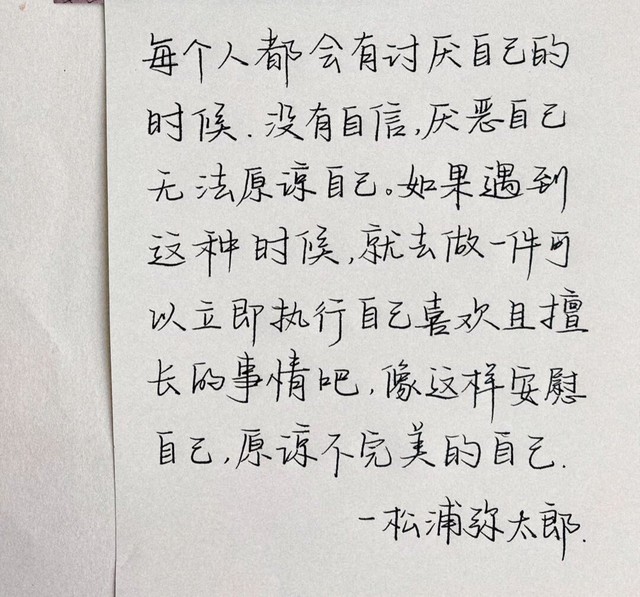 每个人都会有讨厌自己的
时候.没有自信,厌恶自己
无法原谅自己。如果遇到
这种时候,就去做一件可
以立即执行自己喜欢且擅
长的事情吧,像这样安慰
自己,原谅不完美的自己.
-松浦弥太郎.